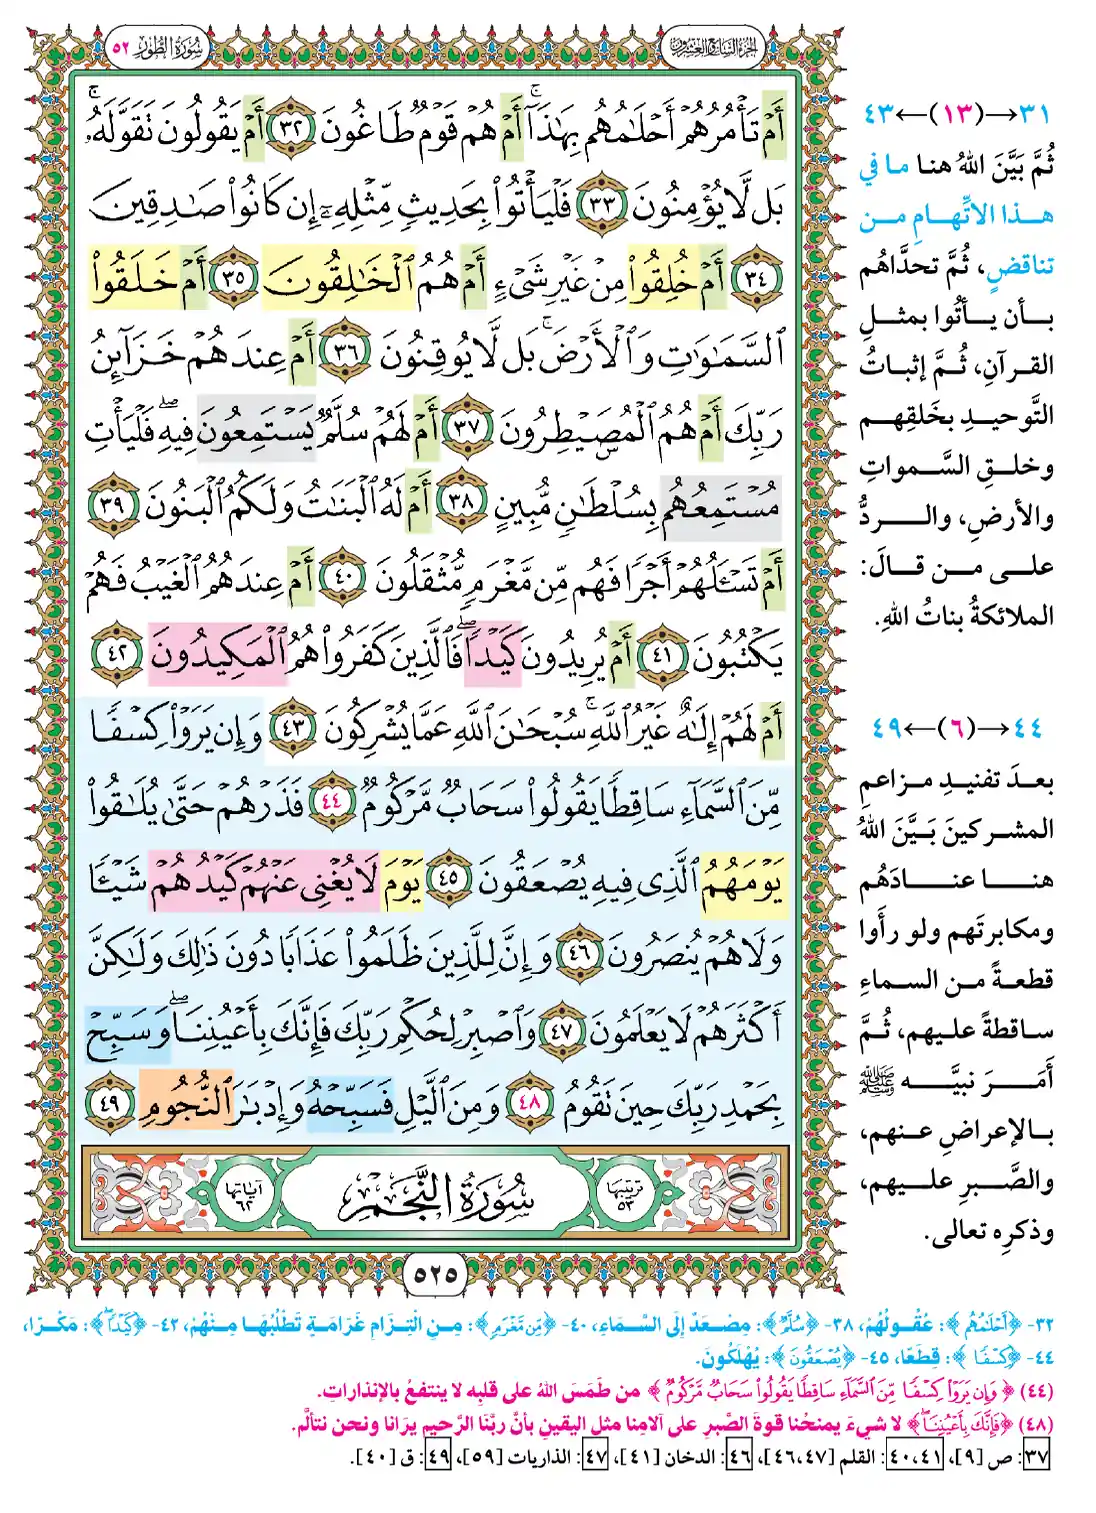 سُورَةُ الطُّورِ ٥٢
الجزء السابع والعشرون
أَمۡ تَأۡمُرُهُمۡ أَحۡلَٰمُهُم بِهَٰذَآۚ أَمۡ هُمۡ قَوۡمٞ طَاغُونَ ٣٢ أَمۡ يَقُولُونَ تَقَوَّلَهُۥۚ
بَل لَّا يُؤۡمِنُونَ ٣٣ فَلۡيَأۡتُواْ بِحَدِيثٖ مِّثۡلِهِۦٓ إِن كَانُواْ صَٰدِقِينَ
٣٤ أَمۡ خُلِقُواْ مِنۡ غَيۡرِ شَيۡءٍ أَمۡ هُمُ ٱلۡخَٰلِقُونَ ٣٥ أَمۡ خَلَقُواْ
ٱلسَّمَٰوَٰتِ وَٱلۡأَرۡضَۚ بَل لَّا يُوقِنُونَ ٣٦ أَمۡ عِندَهُمۡ خَزَآئِنُ
رَبِّكَ أَمۡ هُمُ ٱلۡمُصَۜيۡطِرُونَ ٣٧ أَمۡ لَهُمۡ سُلَّمٞ يَسۡتَمِعُونَ فِيهِۖ فَلۡيَأۡتِ
مُسۡتَمِعُهُم بِسُلۡطَٰنٖ مُّبِينٍ ٣٨ أَمۡ لَهُ ٱلۡبَنَٰتُ وَلَكُمُ ٱلۡبَنُونَ ٣٩
أَمۡ تَسۡـَٔلُهُمۡ أَجۡرٗا فَهُم مِّن مَّغۡرَمٖ مُّثۡقَلُونَ ٤٠ أَمۡ عِندَهُمُ ٱلۡغَيۡبُ فَهُمۡ
يَكۡتُبُونَ ٤١ أَمۡ يُرِيدُونَ كَيۡدٗاۖ فَٱلَّذِينَ كَفَرُواْ هُمُ ٱلۡمَكِيدُونَ ٤٢
أَمۡ لَهُمۡ إِلَٰهٌ غَيۡرُ ٱللَّهِۚ سُبۡحَٰنَ ٱللَّهِ عَمَّا يُشۡرِكُونَ ٤٣ وَإِن يَرَوۡاْ كِسۡفٗا
مِّنَ ٱلسَّمَآءِ سَاقِطٗا يَقُولُواْ سَحَابٞ مَّرۡكُومٞ ٤٤ فَذَرۡهُمۡ حَتَّىٰ يُلَٰقُواْ
يَوۡمَهُمُ ٱلَّذِي فِيهِ يُصۡعَقُونَ ٤٥ يَوۡمَ لَا يُغۡنِي عَنۡهُمۡ كَيۡدُهُمۡ شَيۡـٔٗا
وَلَا هُمۡ يُنصَرُونَ ٤٦ وَإِنَّ لِلَّذِينَ ظَلَمُواْ عَذَابٗا دُونَ ذَٰلِكَ وَلَٰكِنَّ
أَكۡثَرَهُمۡ لَا يَعۡلَمُونَ ٤٧ وَٱصۡبِرۡ لِحُكۡمِ رَبِّكَ فَإِنَّكَ بِأَعۡيُنِنَاۖ وَسَبِّحۡ
بِحَمۡدِ رَبِّكَ حِينَ تَقُومُ ٤٨ وَمِنَ ٱلَّيۡلِ فَسَبِّحۡهُ وَإِدۡبَٰرَ ٱلنُّجُومِ ٤٩
ترتيبها ٥٣
سُورَةُ النَّجْمِ
آياتها ٦٢
٥٢٥
٣١→(١٣)←٤٣
ثُمَّ بَيَّنَ اللهُ هنا ما في
هذا الاتِّهامِ من
تناقضٍ، ثُمَّ تحدَّاهُم
بأن يأتُوا بمثلِ
القرآنِ، ثُمَّ إثباتُ
التَّوحيدِ بخَلقِهم
وخلقِ السَّمواتِ
والأرضِ، والردُّ
على من قالَ:
الملائكةُ بناتُ اللهِ.
٤٤→(٦)←٤٩
بعدَ تفنيدِ مزاعمِ
المشركينَ بَيَّنَ اللهُ
هنا عنادَهُم
ومكابرتَهم ولو رأَوا
قطعةً من السماءِ
ساقطةً عليهم، ثُمَّ
أمَرَ نبيَّه ﷺ
بالإعراضِ عنهم،
والصَّبرِ عليهم،
وذكرِه تعالى.
٣٢- ﴿أَحْلَٰمُهُم﴾: عُقُولُهُمْ، ٣٨- ﴿سُلَّمٌ﴾: مِصْعَدٌ إِلَى السَّمَاءِ، ٤٠- ﴿مِّن مَّغْرَمٍ﴾: مِنِ الْتِزَامِ غَرَامَةٍ تَطْلُبُهَا مِنْهُمْ، ٤٢- ﴿كَيْدًاۖ﴾: مَكْرًا،
٤٤- ﴿كِسْفًا﴾: قِطَعًا، ٤٥- ﴿يُصْعَقُونَ﴾: يُهْلَكُونَ.
(٤٤) ﴿وَإِن يَرَوْاْ كِسْفًا مِّنَ ٱلسَّمَآءِ سَاقِطًا يَقُولُواْ سَحَابٌ مَّرْكُومٌ﴾ من طَمَسَ اللهُ على قلبِه لا ينتفعُ بالإنذاراتِ.
(٤٨) ﴿فَإِنَّكَ بِأَعْيُنِنَاۖ﴾ لا شيءَ يمنحُنا قوةَ الصَّبرِ على آلامِنا مثل اليقينِ بأنَّ ربَّنَا الرَّحيم يرَانا ونحن نتألَّم.
٣٧: ص [٩]، ٤٠،٤١: القلم [٤٦،٤٧]، ٤٦: الدخان [٤١]، ٤٧: الذاريات [٥٩]، ٤٩: ق [٤٠].